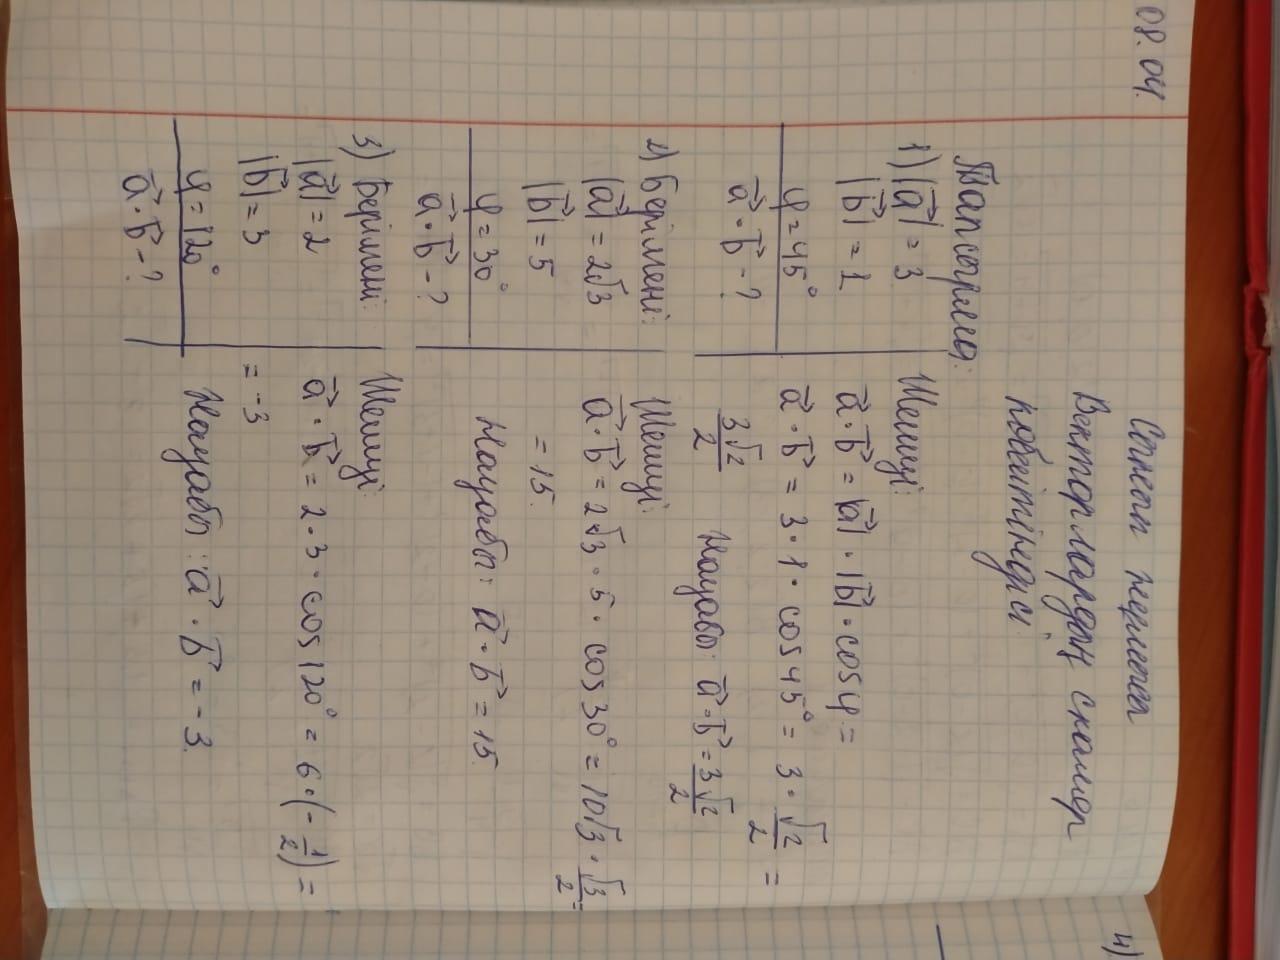 08.04.
Сынып жұмысы
Векторлардың скаляр
көбейтіндісі
Тапсырма:
1) |a⃗| = 3
|b⃗| = 1
φ = 45°
a⃗ · b⃗ - ?
Шешуі:
a⃗ · b⃗ = |a⃗| · |b⃗| · cosφ =
a⃗ · b⃗ = 3 · 1 · cos45° = 3 · √2/2 =
3√2/2
Жауабы: a⃗ · b⃗ = 3√2/2
2) Берілгені:
|a⃗| = 2√3
|b⃗| = 5
φ = 30°
a⃗ · b⃗ - ?
Шешуі:
a⃗ · b⃗ = 2√3 · 5 · cos30° = 10√3 · √3/2 =
= 15.
Жауабы: a⃗ · b⃗ = 15
3) Берілгені:
|a⃗| = 2
|b⃗| = 3
φ = 120°
a⃗ · b⃗ - ?
Шешуі:
a⃗ · b⃗ = 2 · 3 · cos120° = 6 · (-1/2) =
= -3
Жауабы: a⃗ · b⃗ = -3.
4)